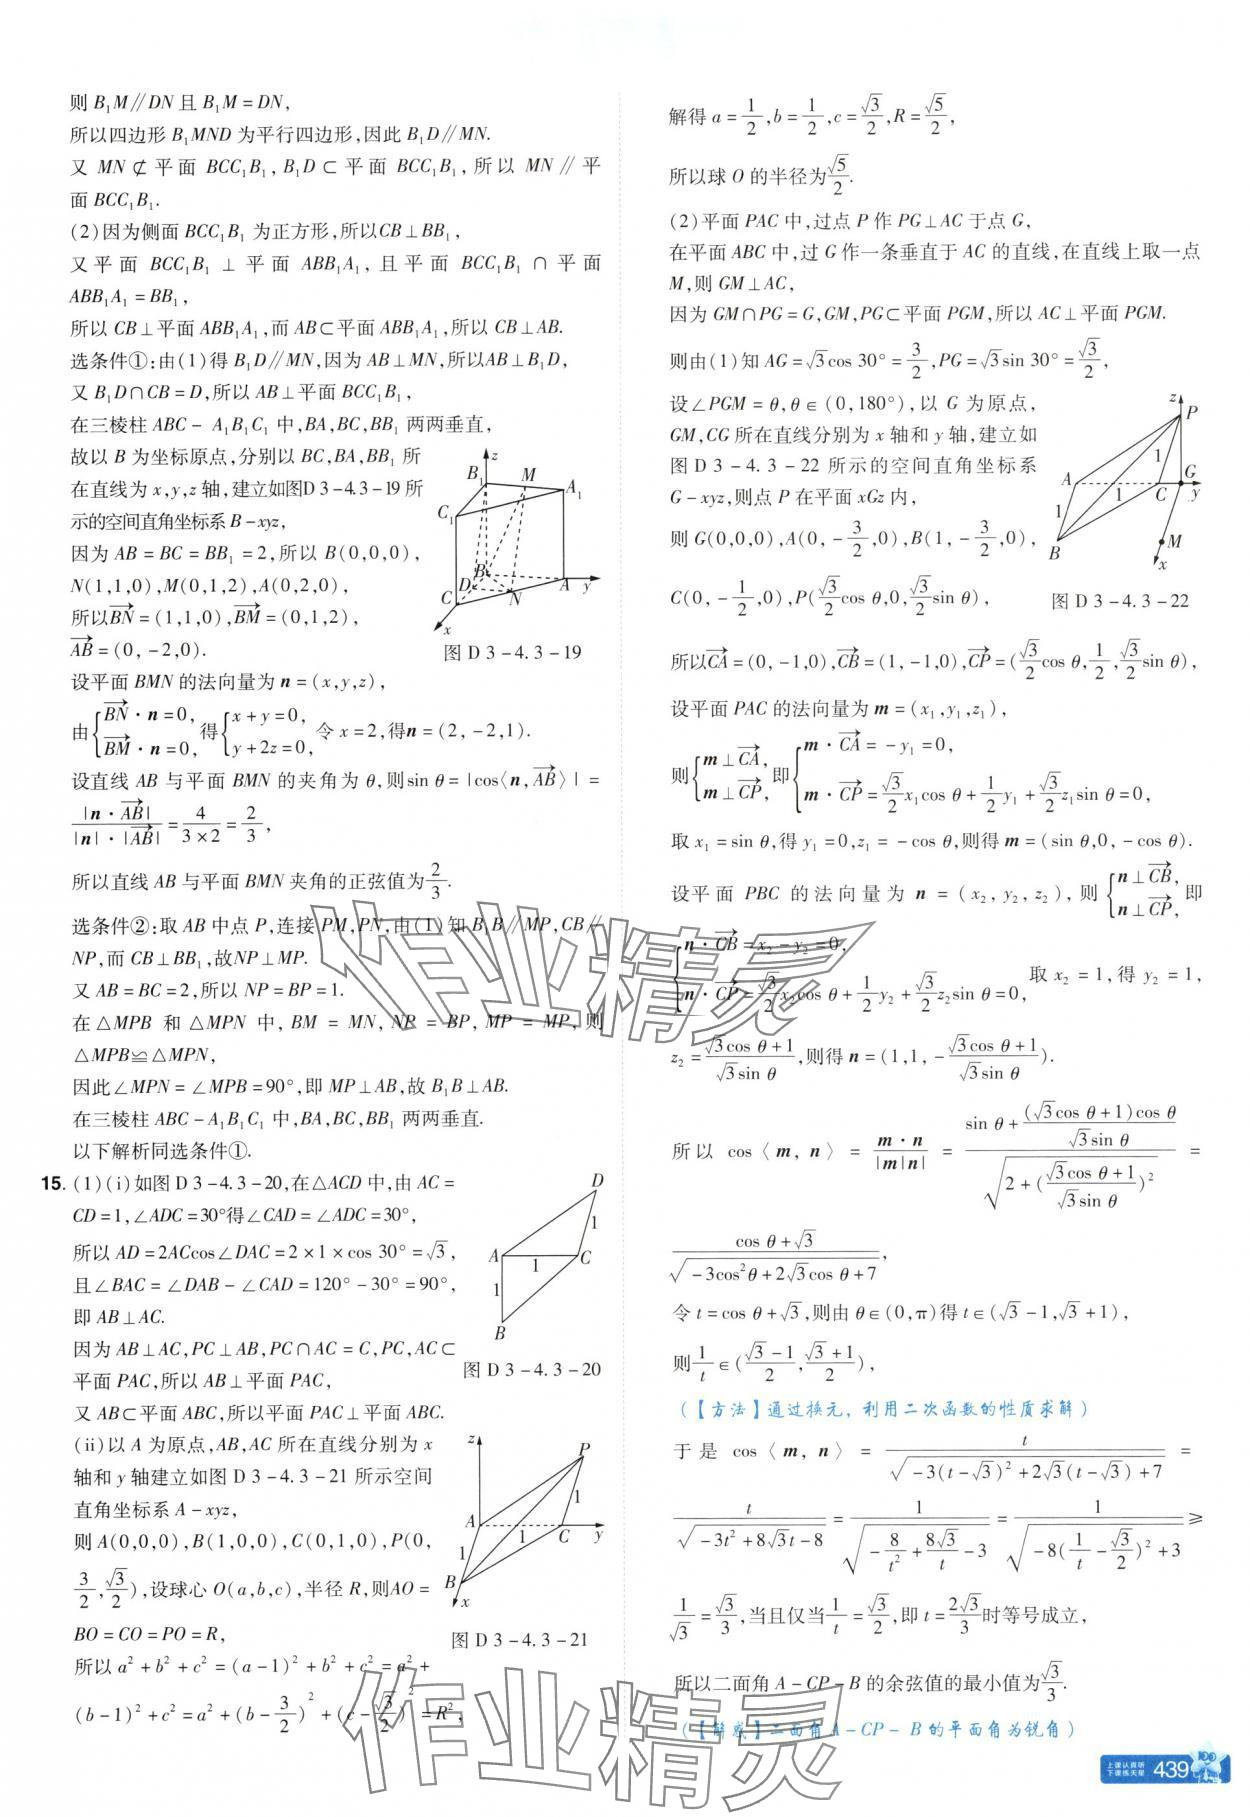 则 B₁M∥DN 且 B₁M=DN,
所以四边形 B₁MND 为平行四边形,因此 B₁D∥MN.
又 MN⊄平面 BCC₁B₁,B₁D⊂平面 BCC₁B₁,所以 MN∥平
面 BCC₁B₁.
(2)因为侧面 BCC₁B₁ 为正方形,所以CB⊥BB₁,
又平面 BCC₁B₁⊥平面 ABB₁A₁,且平面 BCC₁B₁∩平面
ABB₁A₁=BB₁,
所以 CB⊥平面 ABB₁A₁,而 AB⊂平面 ABB₁A₁,所以 CB⊥AB.
选条件①:由(1)得 B₁D∥MN,因为 AB⊥MN,所以AB⊥B₁D,
又 B₁D∩CB=D,所以 AB⊥平面 BCC₁B₁,
在三棱柱 ABC-A₁B₁C₁ 中,BA,BC,BB₁ 两两垂直,
故以 B 为坐标原点,分别以 BC,BA,BB₁ 所
在直线为 x,y,z 轴,建立如图D 3-4.3-19 所
示的空间直角坐标系 B-xyz,
因为 AB=BC=BB₁=2,所以 B(0,0,0),
N(1,1,0),M(0,1,2),A(0,2,0),
所以BN→=(1,1,0),BM→=(0,1,2),
AB→=(0,-2,0).
z B₁ M A₁ C₁ B D A y C N x
图 D 3-4.3-19
设平面 BMN 的法向量为 n=(x,y,z),
由{BN→·n=0, BM→·n=0, 得{x+y=0, y+2z=0, 令 x=2,得n=(2,-2,1).
设直线 AB 与平面 BMN 的夹角为 θ,则sin θ=|cos⟨n,AB→⟩|=
|n·AB→|/(|n|·|AB→|)=4/(3×2)=2/3,
所以直线 AB 与平面 BMN 夹角的正弦值为2/3.
选条件②:取 AB 中点 P,连接 PM,PN,由(1)知 B₁B∥MP,CB∥
NP,而 CB⊥BB₁,故NP⊥MP.
又 AB=BC=2,所以 NP=BP=1.
在△MPB 和△MPN 中,BM=MN,NP=BP,MP=MP,则
△MPB≌△MPN,
因此∠MPN=∠MPB=90°,即 MP⊥AB,故 B₁B⊥AB.
在三棱柱 ABC-A₁B₁C₁ 中,BA,BC,BB₁ 两两垂直.
以下解析同选条件①.
15. (1)(i)如图 D 3-4.3-20,在△ACD 中,由 AC=
CD=1,∠ADC=30°得∠CAD=∠ADC=30°,
所以 AD=2ACcos∠DAC=2×1×cos 30°=√3,
且∠BAC=∠DAB-∠CAD=120°-30°=90°,
即 AB⊥AC.
因为 AB⊥AC,PC⊥AB,PC∩AC=C,PC,AC⊂
平面 PAC,所以 AB⊥平面 PAC,
又 AB⊂平面 ABC,所以平面 PAC⊥平面 ABC.
D 1 A 1 C 1 B
图 D 3-4.3-20
(ii)以 A 为原点,AB,AC 所在直线分别为 x
轴和 y 轴建立如图 D 3-4.3-21 所示空间
直角坐标系 A-xyz,
则 A(0,0,0),B(1,0,0),C(0,1,0),P(0,
3/2,√3/2),设球心 O(a,b,c),半径 R,则AO=
BO=CO=PO=R,
z P 1 A 1 C y 1 B x
图 D 3-4.3-21
所以 a²+b²+c²=(a-1)²+b²+c²=a²+
(b-1)²+c²=a²+(b-3/2)²+(c-√3/2)²=R²,
解得 a=1/2,b=1/2,c=√3/2,R=√5/2,
所以球 O 的半径为√5/2.
(2)平面 PAC 中,过点 P 作 PG⊥AC 于点 G,
在平面 ABC 中,过 G 作一条垂直于 AC 的直线,在直线上取一点
M,则 GM⊥AC,
因为 GM∩PG=G,GM,PG⊂平面 PGM,所以 AC⊥平面 PGM.
则由(1)知 AG=√3cos 30°=3/2,PG=√3sin 30°=√3/2,
设∠PGM=θ,θ∈(0,180°),以 G 为原点,
GM,CG 所在直线分别为 x 轴和 y 轴,建立如
图 D 3-4.3-22 所示的空间直角坐标系
G-xyz,则点 P 在平面 xGz 内,
则 G(0,0,0),A(0,-3/2,0),B(1,-3/2,0),
C(0,-1/2,0),P(√3/2cos θ,0,√3/2sin θ),
z P 1 A G C y 1 1 B M x
图 D 3-4.3-22
所以CA→=(0,-1,0),CB→=(1,-1,0),CP→=(√3/2cos θ,1/2,√3/2sin θ),
设平面 PAC 的法向量为 m=(x₁,y₁,z₁),
则{m⊥CA→, m⊥CP→, 即{m·CA→=-y₁=0, m·CP→=√3/2x₁cos θ+1/2y₁+√3/2z₁sin θ=0,
取 x₁=sin θ,得 y₁=0,z₁=-cos θ,则得 m=(sin θ,0,-cos θ).
设平面 PBC 的法向量为 n=(x₂,y₂,z₂),则{n⊥CB→, n⊥CP→, 即
{n·CB→=x₂-y₂=0, n·CP→=√3/2x₂cos θ+1/2y₂+√3/2z₂sin θ=0, 取 x₂=1,得 y₂=1,
z₂=-(√3cos θ+1)/(√3sin θ),则得 n=(1,1,-(√3cos θ+1)/(√3sin θ)).
所以 cos⟨m,n⟩=m·n/(|m||n|)=(sin θ+(√3cos θ+1)cos θ/(√3sin θ))/√(2+((√3cos θ+1)/(√3sin θ))²)=
(cos θ+√3)/√(-3cos²θ+2√3cos θ+7),
令 t=cos θ+√3,则由 θ∈(0,π)得 t∈(√3-1,√3+1),
则1/t∈((√3-1)/2,(√3+1)/2),
(【方法】通过换元,利用二次函数的性质求解)
于是 cos⟨m,n⟩=t/√(-3(t-√3)²+2√3(t-√3)+7)=
t/√(-3t²+8√3t-8)=1/√(-8/t²+8√3/t-3)=1/√(-8(1/t-√3/2)²+3)≥
1/√3=√3/3,当且仅当1/t=√3/2,即 t=2√3/3时等号成立,
所以二面角 A-CP-B 的余弦值的最小值为√3/3.
(【解惑】二面角 A-CP-B 的平面角为锐角)
上课认真听
下课练天星
439
作业精灵
作业精灵